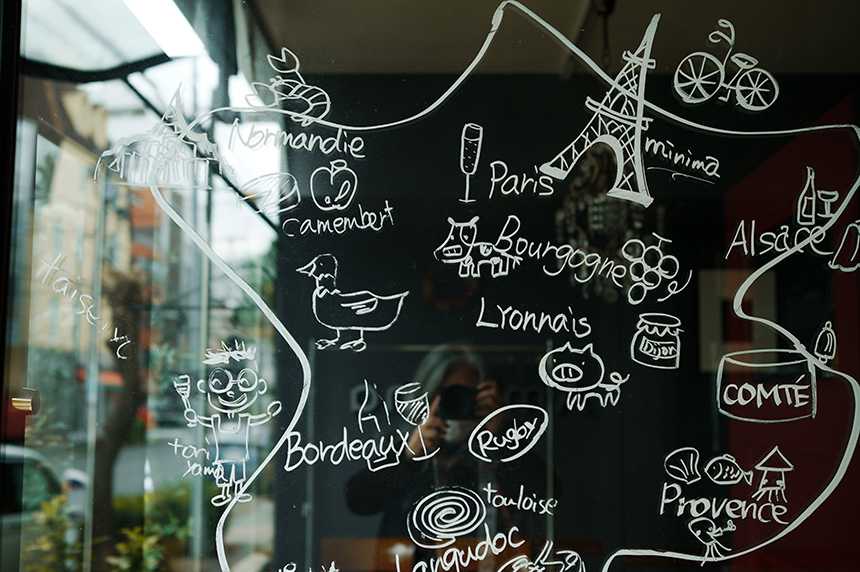 Normandie
minima
Paris
camembert
Alsace
Bourgogne
Lyonnais
Dijon
COMTÉ
Bordeaux
Rugby
tori
yama
Provence
toulouse
Languedoc